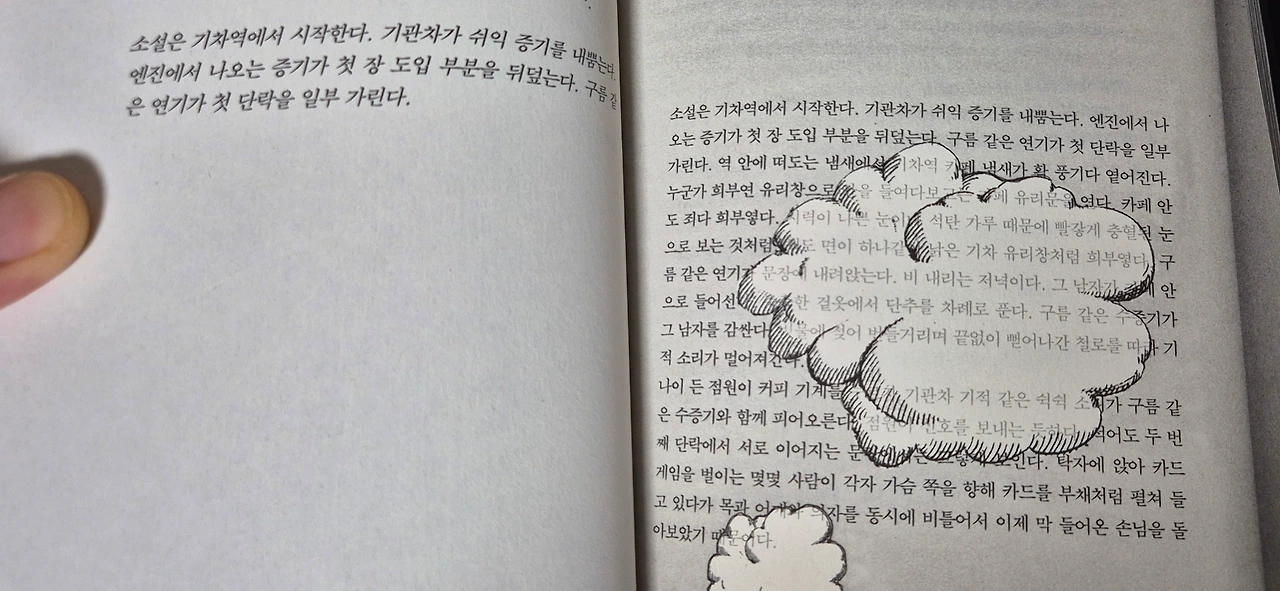 소설은 기차역에서 시작한다. 기관차가 쉬익 증기를 내뿜는다.
엔진에서 나오는 증기가 첫 장 도입 부분을 뒤덮는다. 구름 같
은 연기가 첫 단락을 일부 가린다.
소설은 기차역에서 시작한다. 기관차가 쉬익 증기를 내뿜는다. 엔진에서 나
오는 증기가 첫 장 도입 부분을 뒤덮는다. 구름 같은 연기가 첫 단락을 일부
가린다. 역 안에 떠도는 냄새에서 기차역 카페 냄새가 확 풍기다 옅어진다.
누군가 희부연 유리창으로 안을 들여다보고는 카페 유리문을 연다. 카페 안
도 죄다 희부옇다. 시력이 나쁜 눈이나 석탄 가루 때문에 빨갛게 충혈된 눈
으로 보는 것처럼 면이 하나같이 낡은 기차 유리창처럼 희부옇다. 구
름 같은 연기가 문장에 내려앉는다. 비 내리는 저녁이다. 그 남자가 안
으로 들어선 겉옷에서 단추를 차례로 푼다. 구름 같은 수증기가
그 남자를 감싼다. 빗물에 젖어 번들거리며 끝없이 뻗어나간 철로를 따라 기
적 소리가 멀어져간다.
나이 든 점원이 커피 기계를 기관차 기적 같은 쉭쉭 소리가 구름 같
은 수증기와 함께 피어오른다. 점원이 신호를 보내는 듯하다. 적어도 두 번
째 단락에서 서로 이어지는 보인다. 탁자에 앉아 카드
게임을 벌이는 몇몇 사람이 각자 가슴 쪽을 향해 카드를 부채처럼 펼쳐 들
고 있다가 목과 의자를 동시에 비틀어서 이제 막 들어온 손님을 돌
아보았기 때문이다.